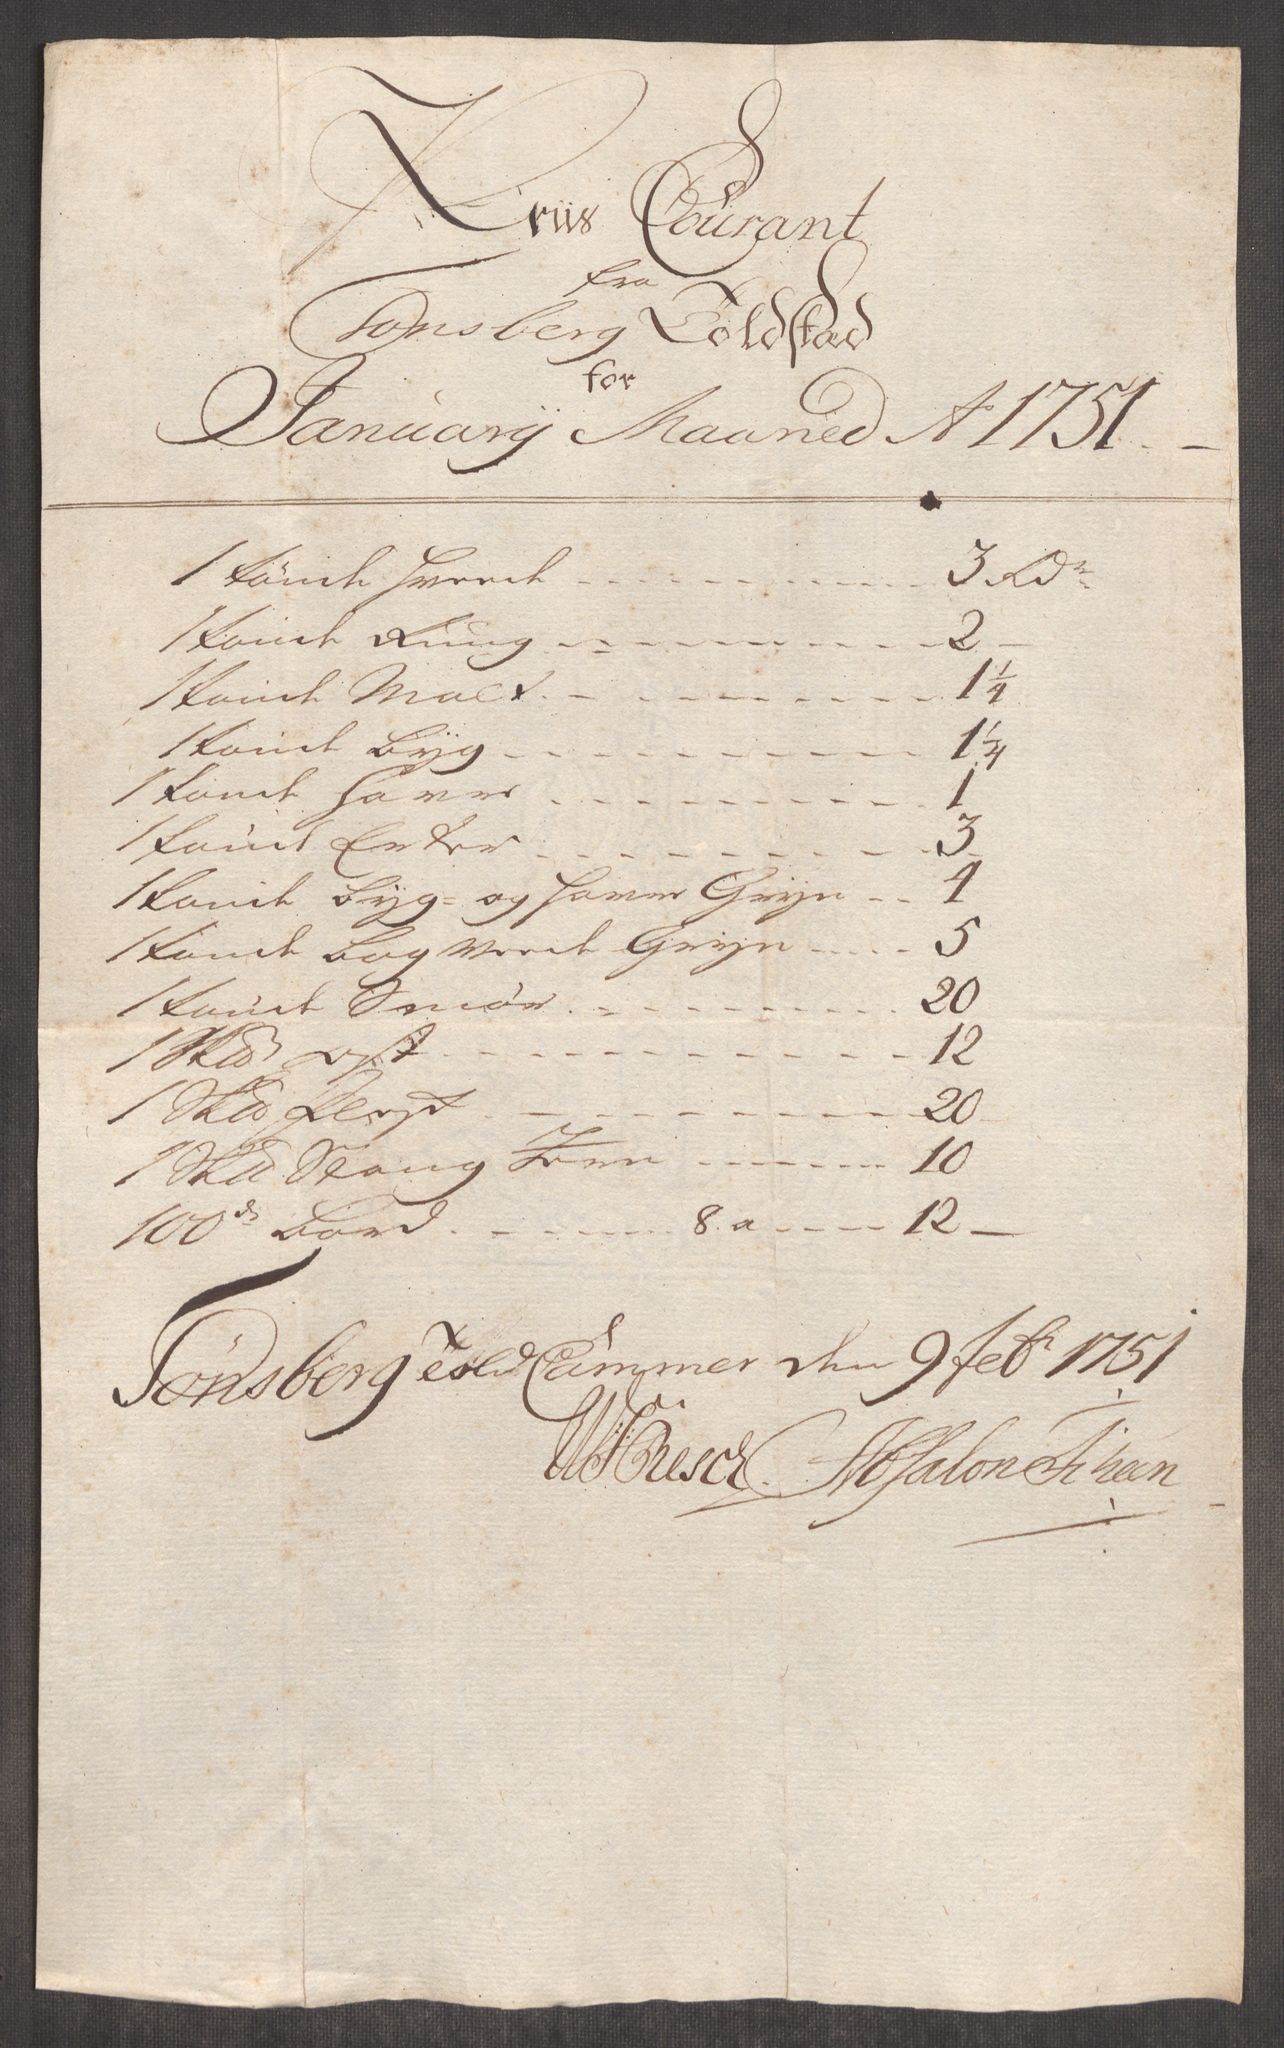 Priis Courant
fra
Tönsberg Toldstad
for
Januarij Maaned Ao 1751
1 tönde Hvede 3 Rdr
1 tönde Rüug 2
1 tönde Malt 1 1/4
1 tönde Byg 1 1/4
1 tönde Haver 1
1 tönde Erter 3
1 tönde Byg- og Haver Gryn 4
1 tönde Boghvede Gryn 5
1 tönde Smör 20
1 Skd 12
1 Skd 20
1 Skd Stang Jern 10
100de Bord 8 a 12
Tönsberg Told Cammer den 9 febr 1751
Absalon